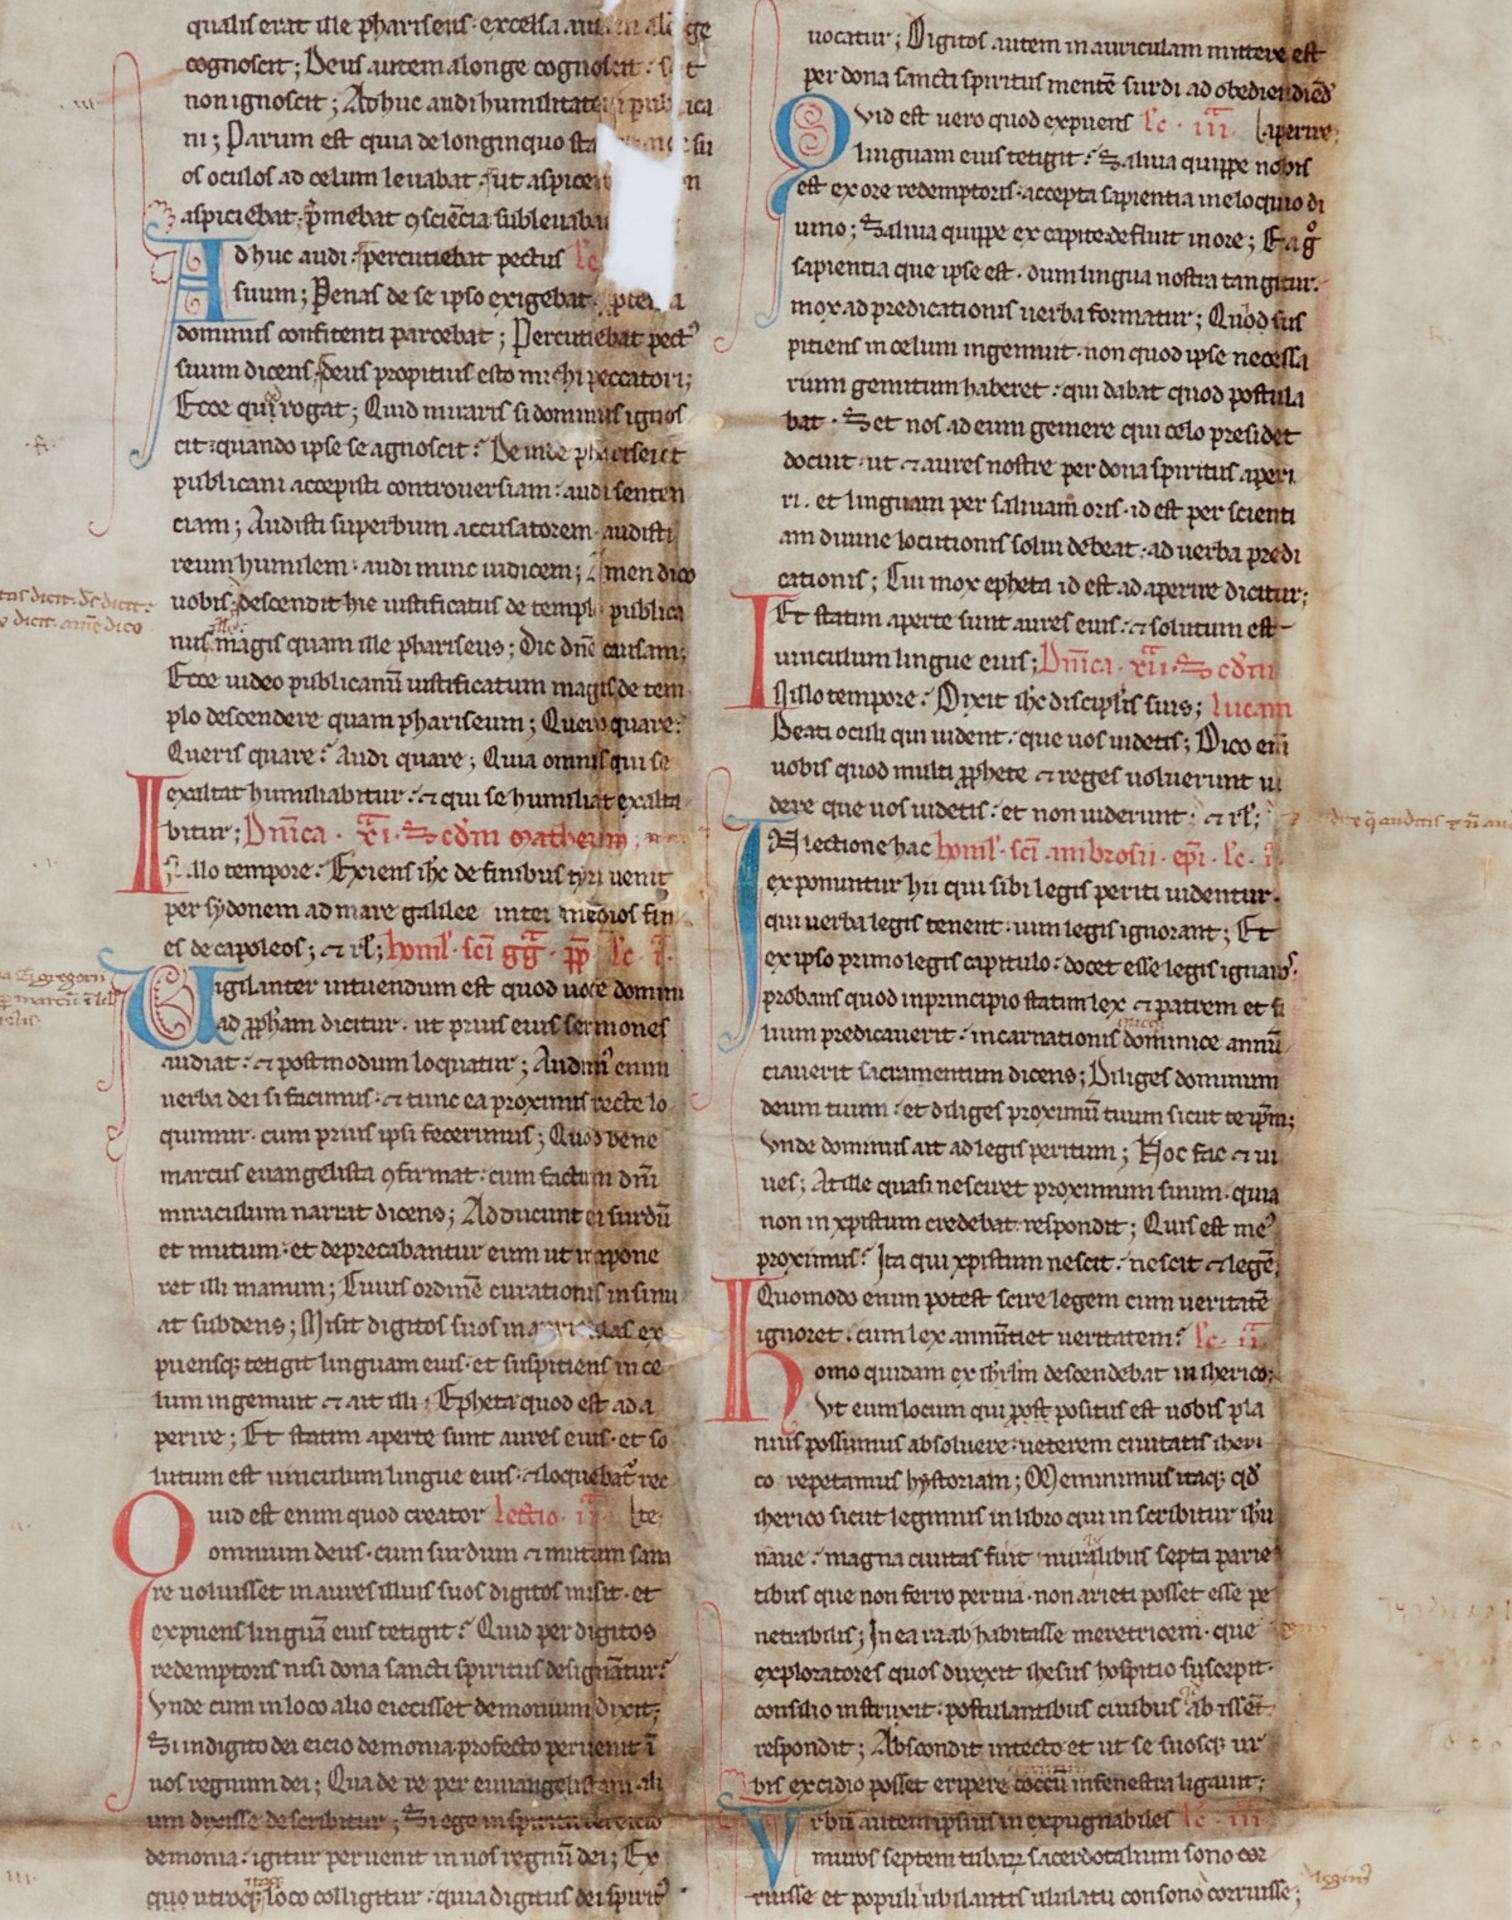 qualis erat ille phariseus· excelsa
cognoscit; Deus autem alonge cognoscit· set
non ignoscit; Adhuc audi humilitatem publica
ni; Parum est quia de longinquo sta
os oculos ad celum leuabat· ut aspice
aspiciebat· p̄mebat ꝯsciēcia subleuaba
Adhuc audi· percutiebat pectus
suum; Penas de se ipso exigebat·
dominus confitenti parcebat; Percutiebat pectꝰ
suum dicens· deus propitius esto michi peccatori;
Ecce qui rogat; Quid miraris si dominus ignos
cit· quando ipse se agnoscit? Deinde
publicani accepisti controuersiam· audi senten
ciam; Audisti superbum accusatorem· audisti
reum humilem· audi nunc iudicem; Amen dico
uobis· descendit hic iustificatus de templo publica
nus magis quam ille phariseus; Dic dn̄e causam;
Ecce uideo publicanū iustificatum magis de tem
plo descendere quam phariseum; Quero quare?
Queris quare? Audi quare; Quia omnis qui se
exaltat humiliabitur· ⁊ qui se humiliat exalta
bitur; Dn̄ica· xi· Scd̄m Matheum;
Illo tempore· Exiens ih̄c de finibus tyri uenit
per sydonem ad mare galilee inter medios fin
es decapoleos; ⁊ rł; homł· sc̄i gḡ· pp̄ łc· i·
Uigilanter intuendum est quod uoce domini
ad ꝓpham dicitur· ut prius eius sermones
audiat· ⁊ postmodum loquatur; Audimꝰ enim
uerba dei si facimus· ⁊ tunc ea proximis recte lo
quimur· cum prius ipsi fecerimus; Quod bene
marcus euangelista ꝯfirmat· cum factum dn̄i
miraculum narrat dicens; Adducunt ei surdū
et mutum· et deprecabantur eum ut impone
ret illi manum; Cuius ordinē curationis insinu
at subdens; Misit digitos suos in auriculas ex
puensq; tetigit linguam eius· et suspitiens in ce
lum ingemuit ⁊ ait illi· Epheta quod est ada
perire; Et statim aperte sunt aures eius· et so
lutum est uinculum lingue eius· ⁊ loquebat᷑ rec
Quid est enim quod creator Lectio· ii· [te;
omnium deus· cum surdum ⁊ mutum sana
re uoluisset in aures illius suos digitos misit· et
expuens linguā eius tetigit? Quid per digitos
redemptoris nisi dona sancti spiritus designātur?
Vnde cum in loco alio eiecisset demonium dixit;
Si in digito dei eicio demonia profecto peruenit ī
uos regnum dei; Qua de re per euuangelistam ali
um dixisse describitur; Si ego in spiritu dei eicio
demonia· igitur peruenit in uos regnū dei; Ex
quo utroq; loco colligitur· quia digitus dei spiritꝰ
uocatur; Digitos autem in auriculam mittere est
per dona sancti spiritus mentē surdi ad obediendū
Quid est uero quod expuens łc· iii· [aperire;
linguam eius tetigit? Saliua quippe nobis
est ex ore redemptoris· accepta sapientia in eloquio di
uino; Saliua quippe ex capite defluit in ore; Ea gͦ
sapientia que ipse est· dum lingua nostra tangitur·
mox ad predicationis uerba formatur; Quod sus
pitiens in celum ingemuit· non quod ipse necessa
rium gemitum haberet· qui dabat quod postula
bat· Set nos ad eum gemere qui celo presidet
docuit· ut ⁊ aures nostre per dona spiritus aperi
ri· et linguam per saliuam oris· id est per scienti
am diuine locutionis solui debeat· ad uerba predi
cationis; Cui mox epheta id est ad aperire dicitur;
Et statim aperte sunt aures eius· ⁊ solutum est
uinculum lingue eius; Dn̄ica· xii· Scd̄m
Illo tempore· Dixit ih̄c discipłis suis; lucam
Beati oculi qui uident· que uos uidetis; Dico eni̅
uobis quod multi ꝓphete ⁊ reges uoluerunt ui
dere que uos uidetis· et non uiderunt· ⁊ rł;
IN lectione hac homł· sc̄i ambrosii· ep̄i· łc· i·
exponuntur hii qui sibi legis periti uidentur·
qui uerba legis tenent· uim legis ignorant; Et
ex ipso primo legis capitulo· docet esse legis ignaros·
probans quod in principio statim lex ⁊ patrem et fi
lium predicauerit· incarnationis dominice annū
ciauerit sacramentum dicens; Diliges dominum
deum tuum· et diliges proximū tuum sicut te ip̄m;
Vnde dominus ait ad legis peritum; Hoc fac ⁊ ui
ues; At ille quasi nesciret proximum suum· quia
non in xpistum credebat· respondit; Quis est meꝰ
proximus? Ita qui xpistum nescit· nescit ⁊ legē;
Quomodo enim potest scire legem cum ueritatē
ignoret· cum lex annūtiet ueritatem? łc· ii·
Homo quidam ex ih̄rłm descendebat in iherico;
Vt eum locum qui post positus est uobis pla
nius possimus absoluere· ueterem ciuitatis iheri
co repetamus hystoriam; Meminimus itaq; qd̄
iherico sicut legimus in libro qui inscribitur ih̄u
naue· magna ciuitas fuit muralibus septa parie
tibus que non ferro peruia· non arieti posset esse pe
netrabilis; In ea raab habitasse meretricem· que
exploratores quos direxit ihesus hospitio suscepit·
consilio instruxit· postulantibus ciuibus abissēt
respondit; Abscondit in tecto et ut se suosq; ur
bis excidio posset eripere coccū in fenestra ligauit;
Vrbiū autem ipsius inexpugnabiles łc· iii·
muros septem tubarꝝ sacerdotalium sono cor
ruisse et populi iubilantis ululatu consono corruisse;